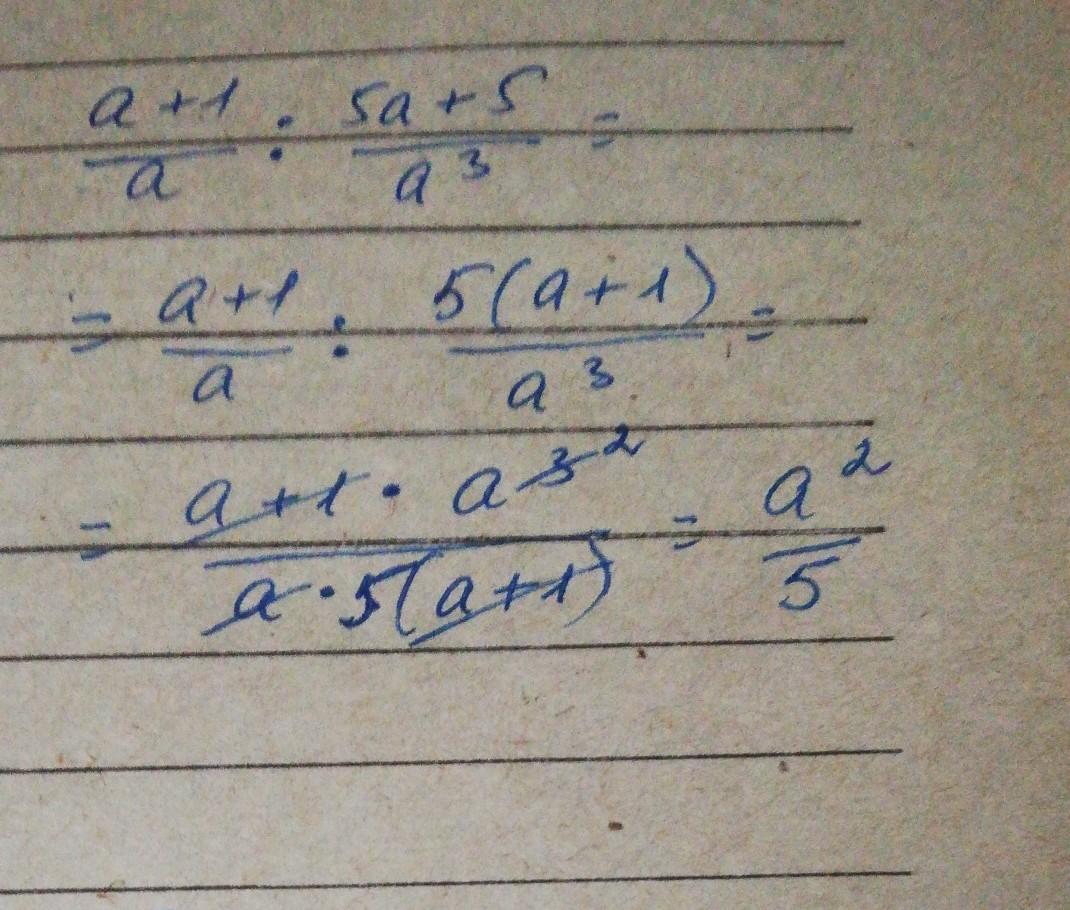 (a+1)/a : (5a+5)/a³ =
= (a+1)/a : 5(a+1)/a³ =
= (a+1 · a³ ²)/(a · 5(a+1)) = a²/5